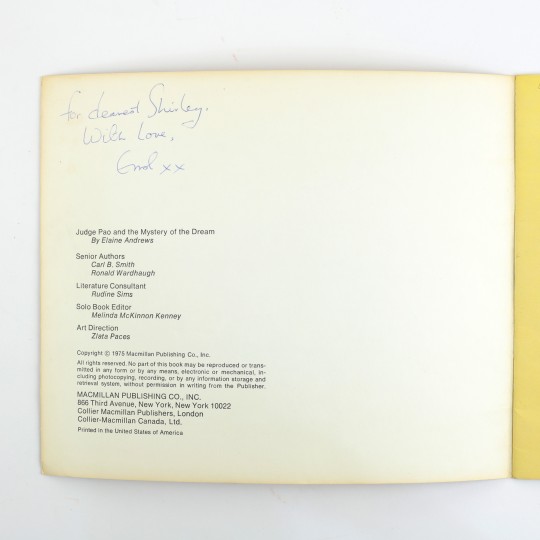 for dearest Shirley.
With Love,
Errol xx
Judge Pao and the Mystery of the Dream
By Elaine Andrews
Senior Authors
Carl B. Smith
Ronald Wardhaugh
Literature Consultant
Rudine Sims
Solo Book Editor
Melinda McKinnon Kenney
Art Direction
Zlata Paces
Copyright © 1975 Macmillan Publishing Co., Inc.
All rights reserved. No part of this book may be reproduced or trans-
mitted in any form or by any means, electronic or mechanical, in-
cluding photocopying, recording, or by any information storage and
retrieval system, without permission in writing from the Publisher.
MACMILLAN PUBLISHING CO., INC.
866 Third Avenue, New York, New York 10022
Collier Macmillan Publishers, London
Collier-Macmillan Canada, Ltd.
Printed in the United States of America